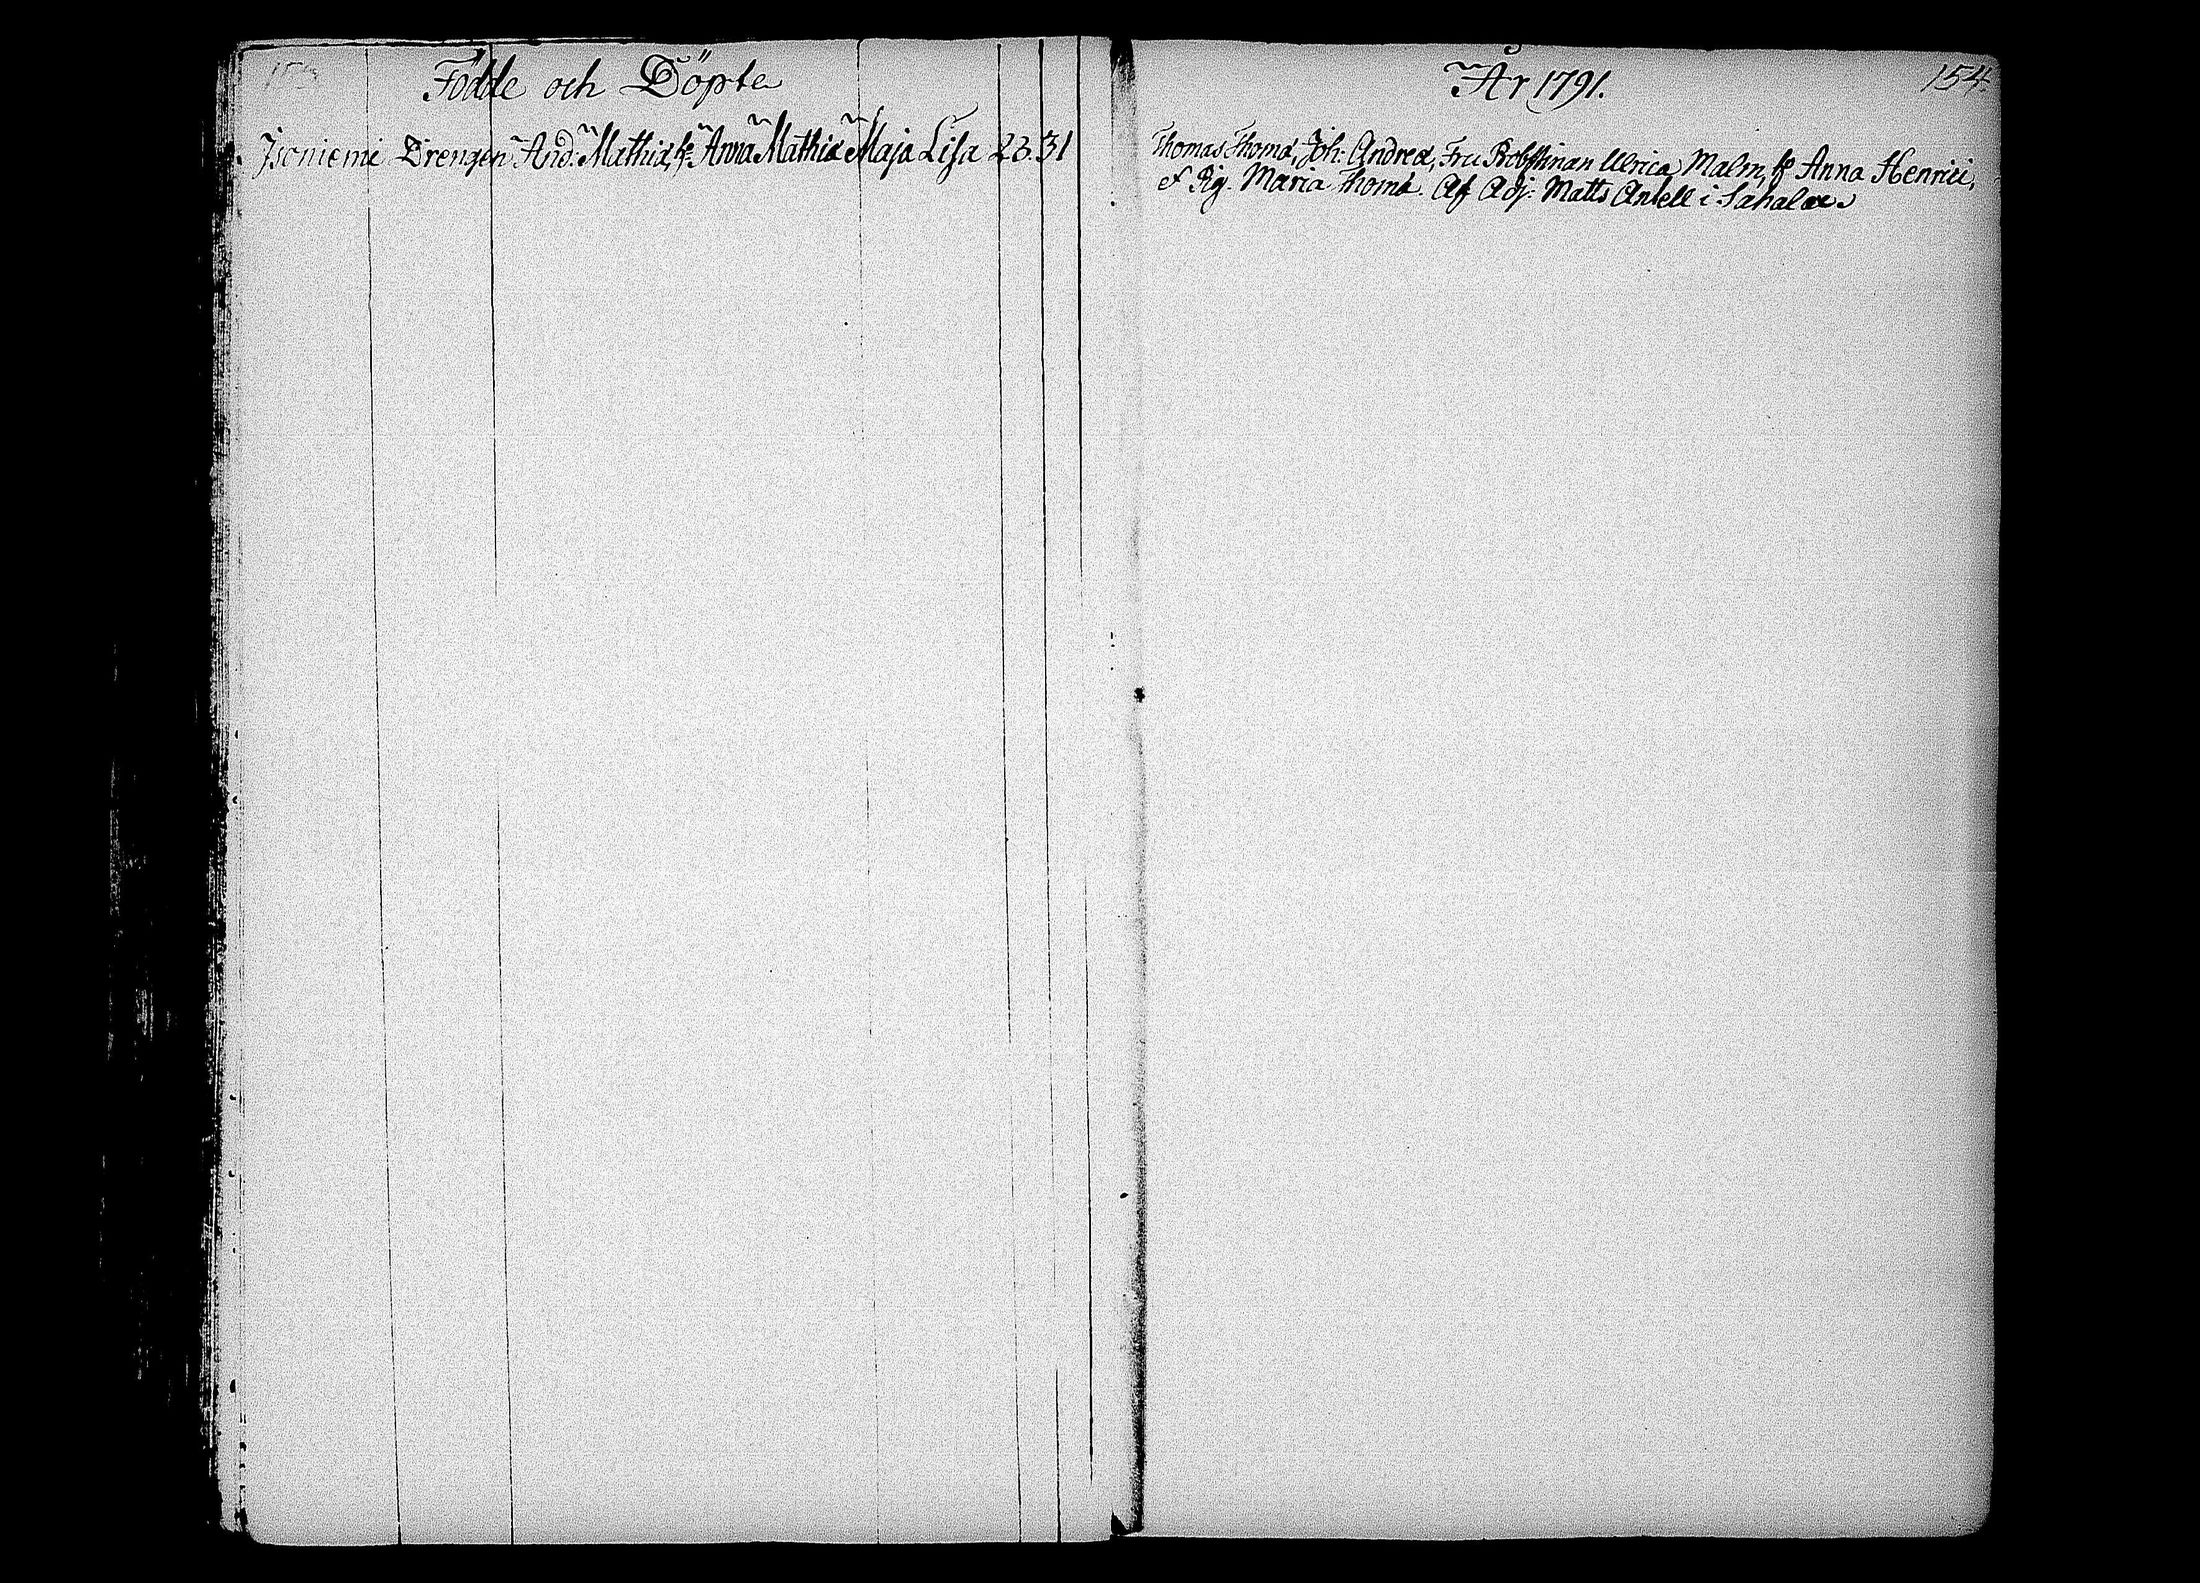 Födde och Döpte
Isoniemi Drengen And: Mathiæ, h: Anna Mathiæ Maja Lisa 23. 31
År 1791.
154.
Thomas Thomæ, Joh: Andreæ, Fru Ulrica Malm, h: Anna Henrici,
& Pig. Maria Thomæ. Af Adj. Matts Antell i Sahalax